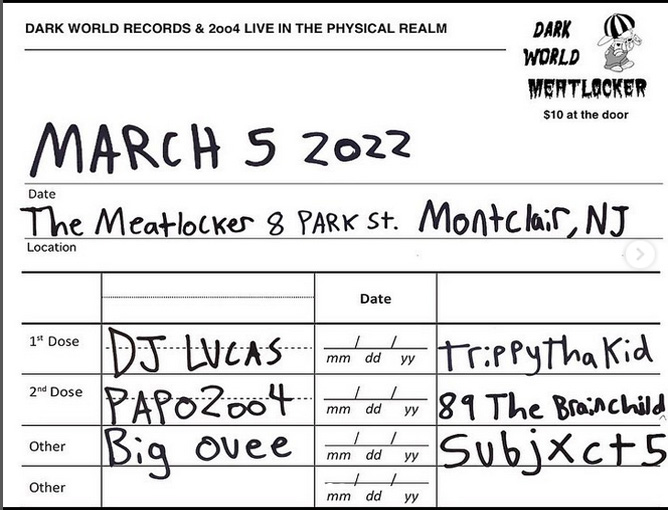 DARK WORLD RECORDS & 2oo4 LIVE IN THE PHYSICAL REALM
DARK
WORLD
MEATLOCKER
$10 at the door
MARCH 5 2022
Date
The Meatlocker 8 PARK St. Montclair, NJ
Location
Date
1st Dose DJ LUCAS / / TrippyThaKid
mm dd yy
2nd Dose PAPO2oo4 / / 89 The Brainchild
mm dd yy
Other Big Ovee / / Subjxct 5
mm dd yy
Other / /
mm dd yy